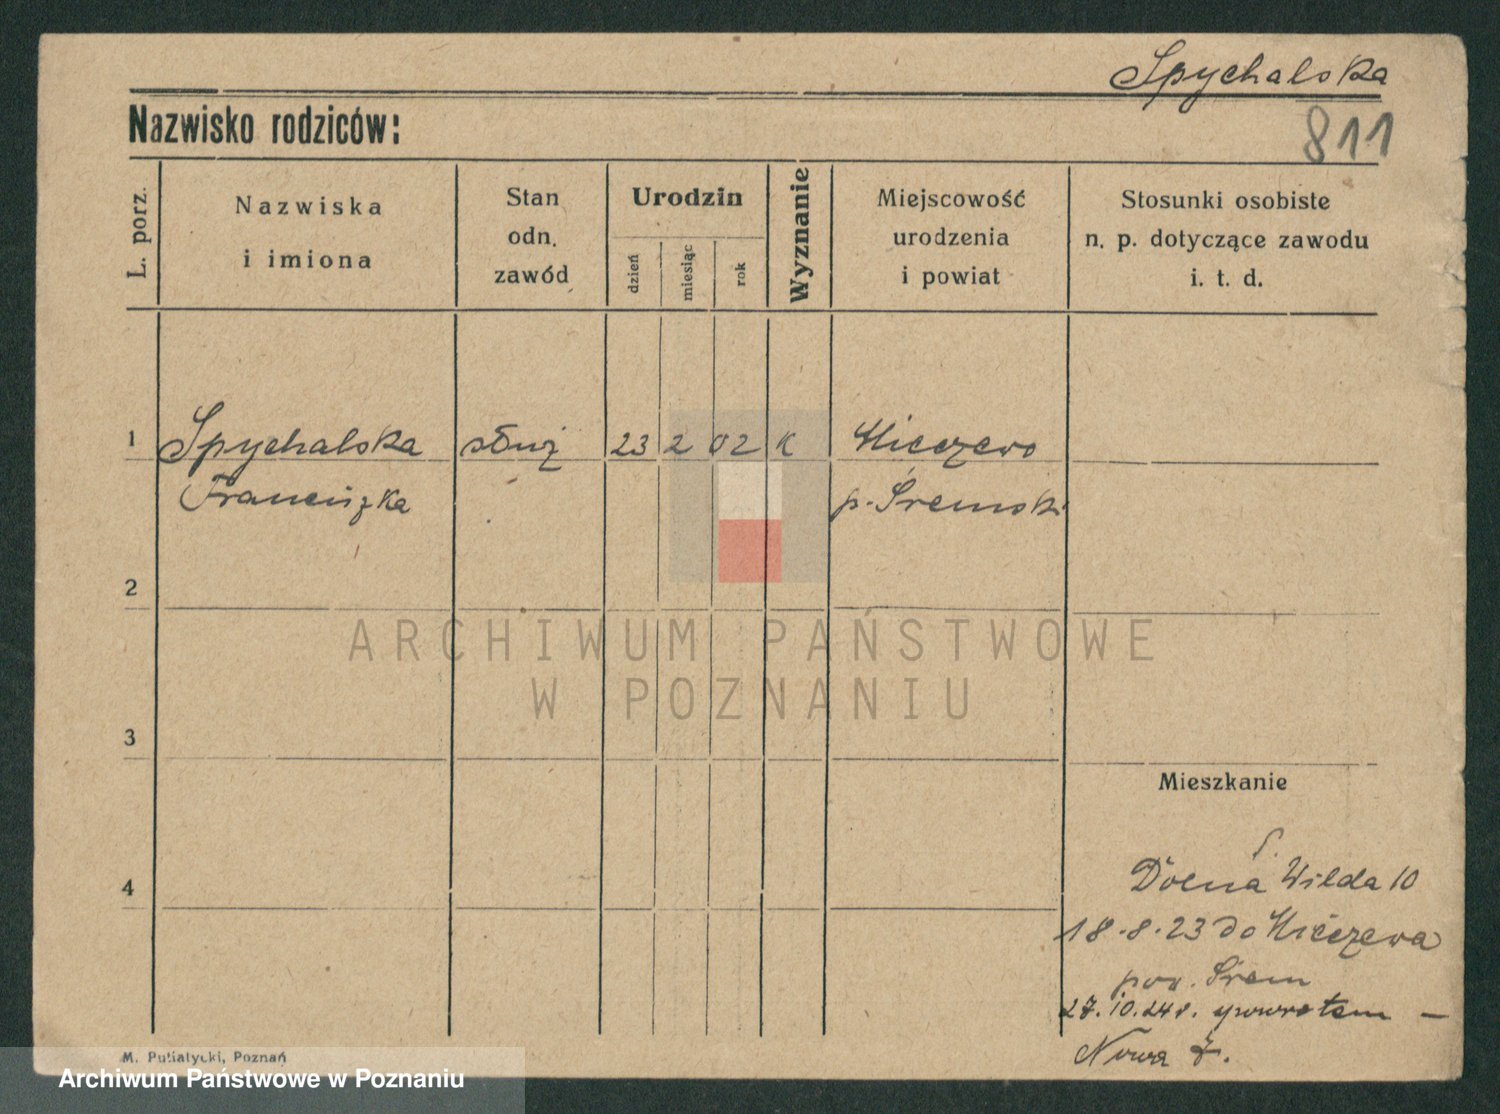 Spychalska
811
Nazwisko rodziców:
L. porz.
Nazwiska
i imiona
Stan
odn.
zawód
Urodzin
dzień
miesiąc
rok
Wyznanie
Miejscowość
urodzenia
i powiat
Stosunki osobiste
n. p. dotyczące zawodu
i. t. d.
1 Spychalska służ 23 2 02 K Hieczewo
Franciszka p. Śremski
2
ARCHIWUM PAŃSTWOWE
W POZNANIU
3
Mieszkanie
4
Dolna Wilda 10
18.8.23 do Hieczewa
pow. Śrem
27.10.24 r. z powrotem –
Nowa 7.
M. Putiatycki, Poznań
Archiwum Państwowe w Poznaniu